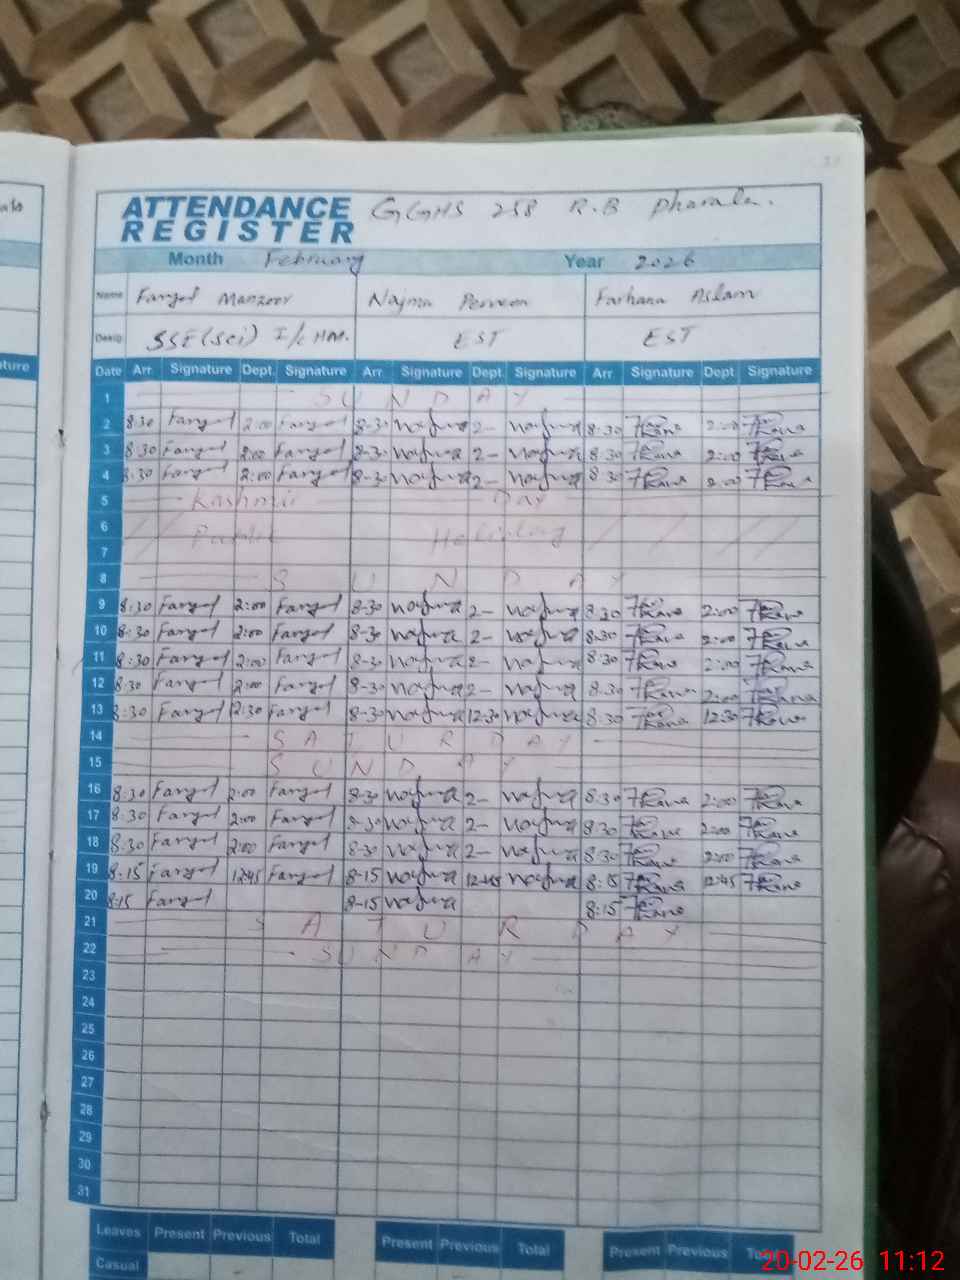 ATTENDANCE REGISTER GGHS 258 R.B Dharala.
Month February Year 2026
Name Farzet Manzoor Najma Perveen Farhana Aslam
Desig SSE(Sci) I/c HM. EST EST
Date Arr. Signature Dept. Signature Arr. Signature Dept. Signature Arr. Signature Dept. Signature
1 SUNDAY
2 8:30 2:00 8-30 Najma 2- Najma 8:30 2:00
3 8:30 2:00 8-30 Najma 2- Najma 8:30 2:00
4 8:30 2:00 8-30 Najma 2- Najma 8:30 2:00
5 Kashmir Day
6 Public Holiday
7
8 SUNDAY
9 8:30 2:00 8-30 Najma 2- Najma 8:30 2:00
10 8:30 2:00 8-30 Najma 2- Najma 8:30 2:00
11 8:30 2:00 8-30 Najma 2- Najma 8:30 2:00
12 8:30 2:00 8-30 Najma 2- Najma 8:30 2:00
13 8:30 12:30 8-30 Najma 12:30 Najma 8:30 12:30
14 SATURDAY
15 SUNDAY
16 8:30 2:00 8-30 Najma 2- Najma 8:30 2:00
17 8:30 2:00 8-30 Najma 2- Najma 8:30 2:00
18 8:30 2:00 8-30 Najma 2- Najma 8:30 2:00
19 8:15 12:45 8-15 Najma 12:45 Najma 8:15 12:45
20 8:15 8-15 Najma 8:15
21 SATURDAY
22 SUNDAY
23
24
25
26
27
28
29
30
31
Leaves Present Previous Total Present Previous Total Present Previous Total
Casual
20-02-26 11:12